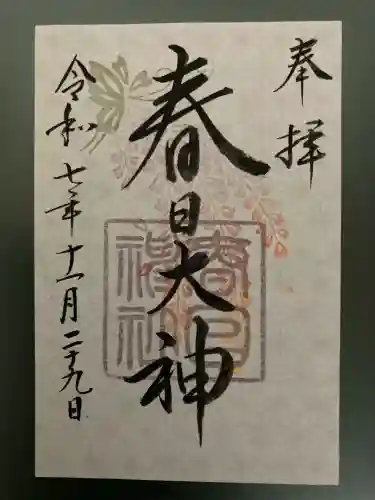 奉拝
春日大神
春日
神社
令和七年十一月二十九日